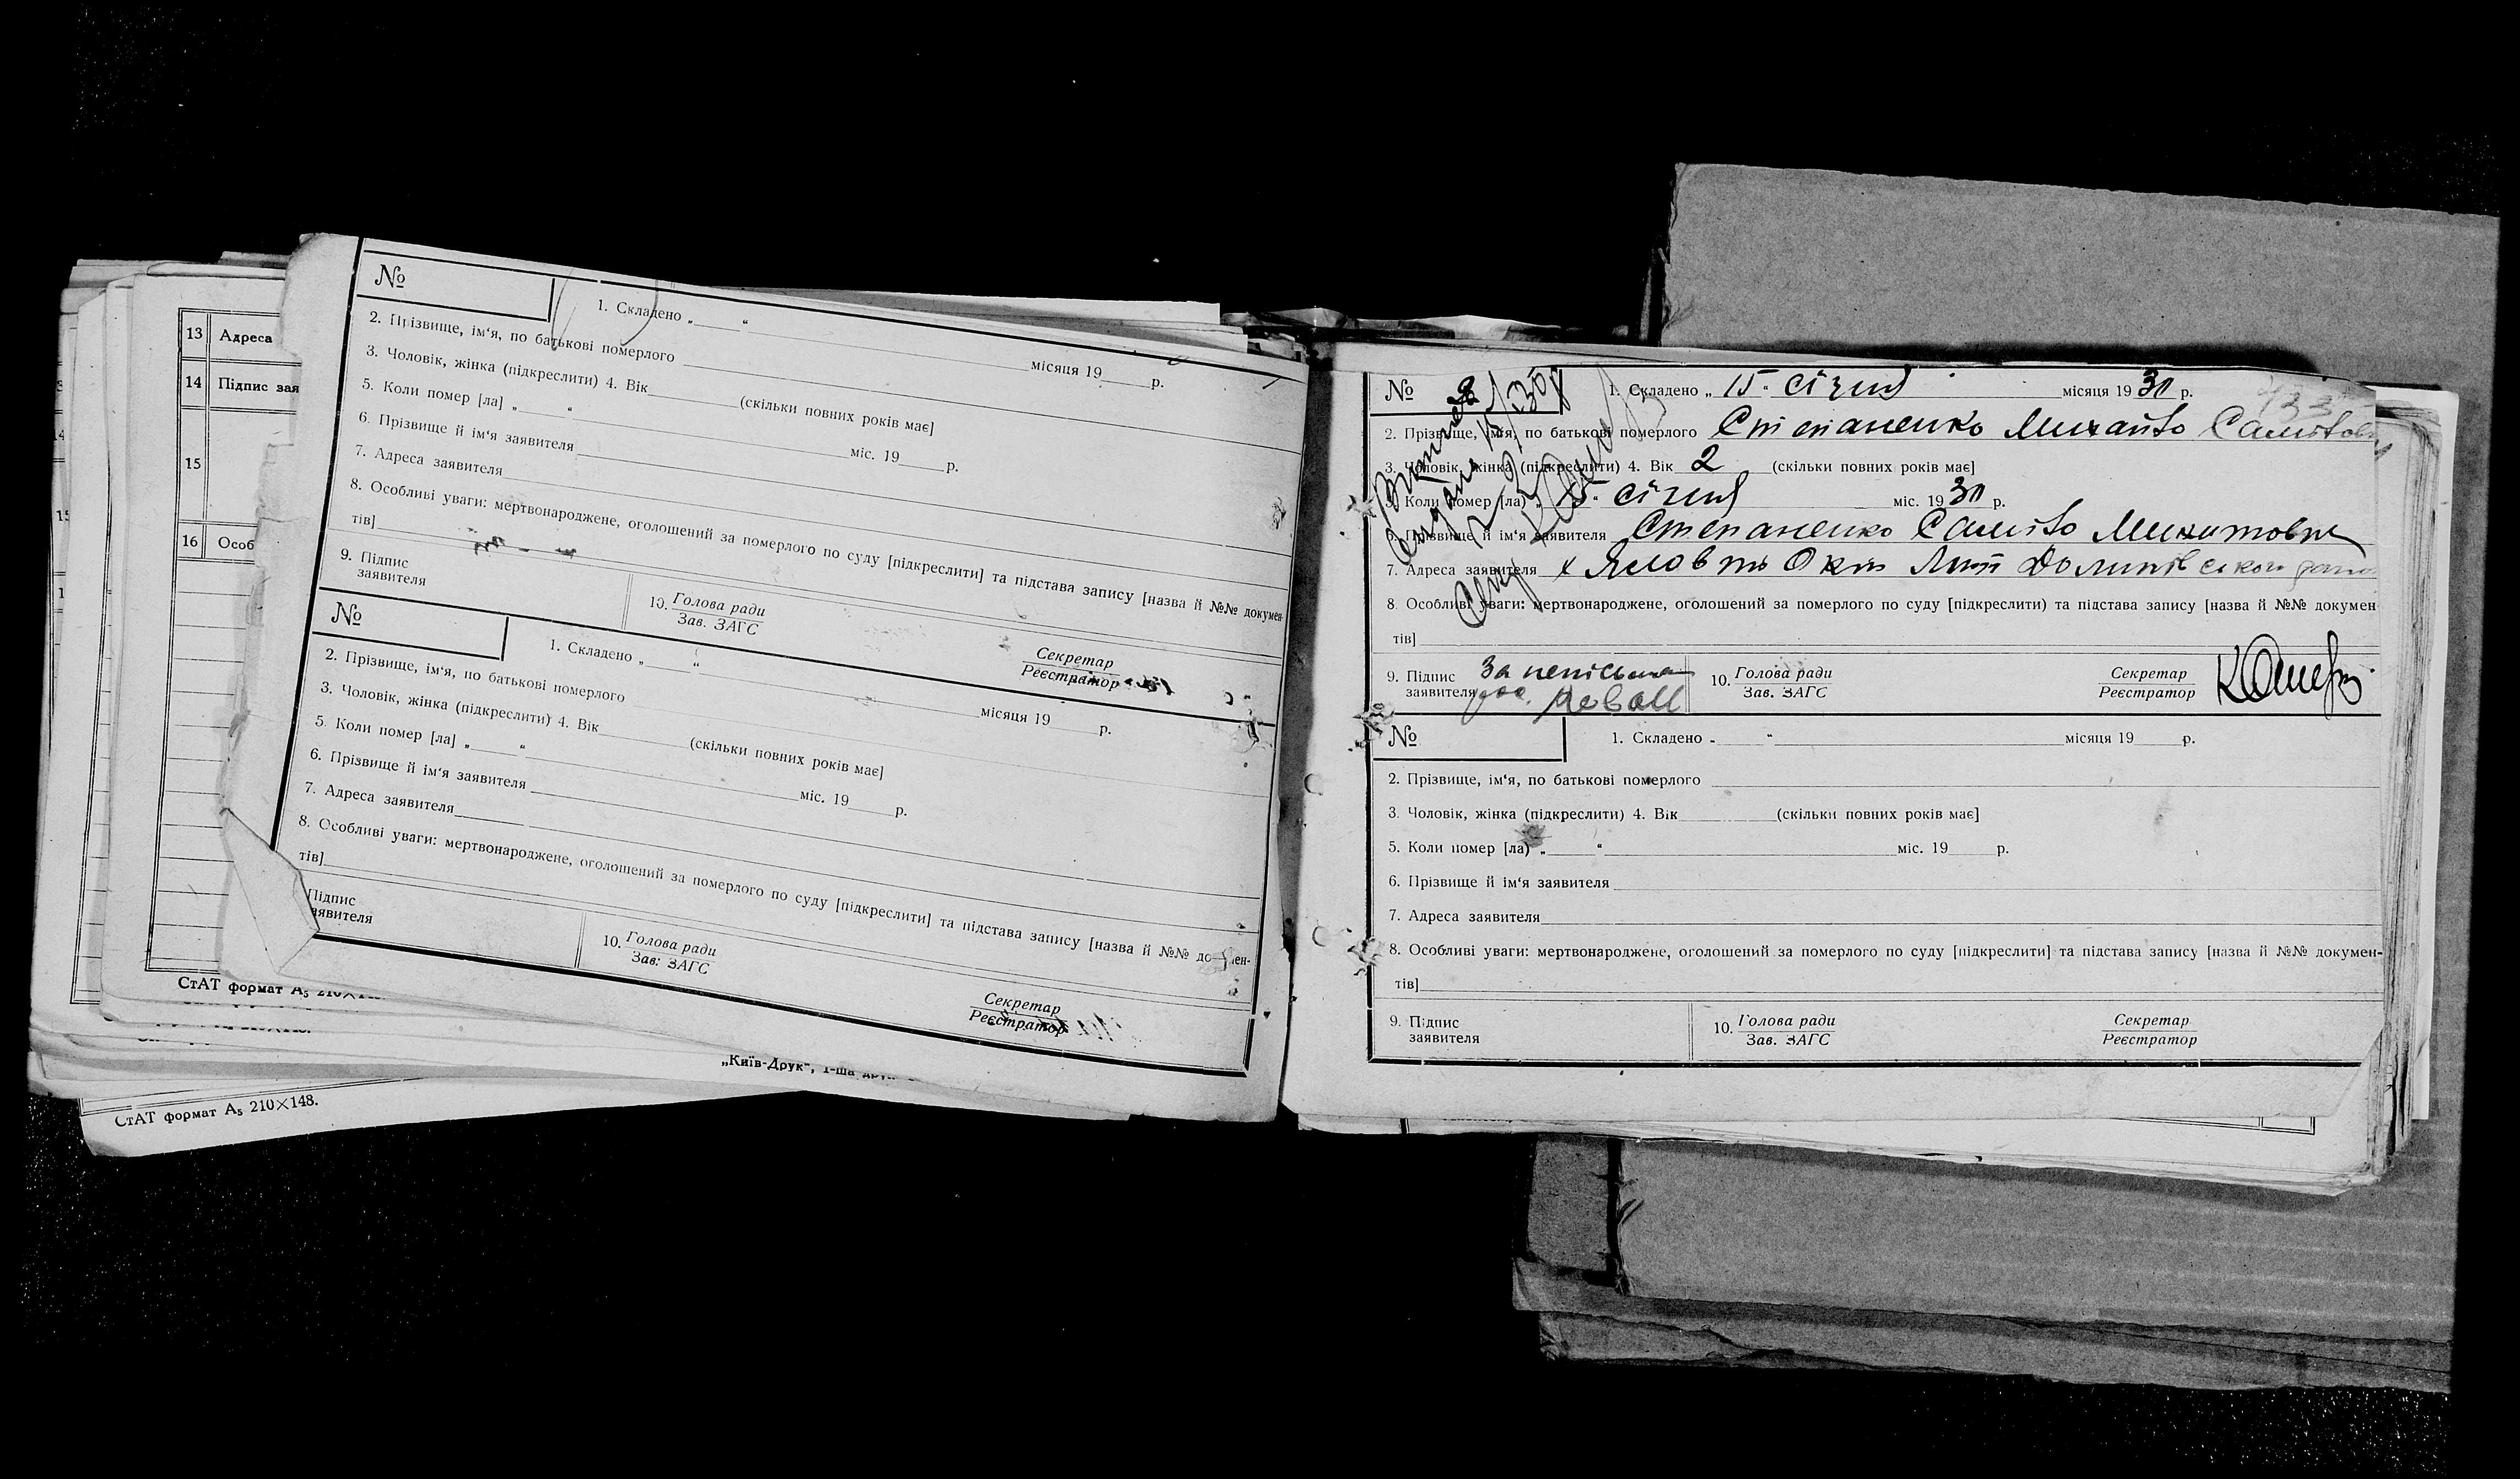 13 Адреса
14 Підпис зая
15
16 Особ
СтАТ формат А₅
СтАТ формат А₅ 210×148.
„Київ-Друк“, 1-ша
№
1. Складено „ “ місяця 19 р.
2. Прізвище, ім‘я, по батькові померлого
3. Чоловік, жінка (підкреслити) 4. Вік (скільки повних років має]
5. Коли помер [ла] „ “ міс. 19 р.
6. Прізвище й ім‘я заявителя
7. Адреса заявителя
8. Особливі уваги: мертвонароджене, оголошений за померлого по суду [підкреслити] та підстава запису [назва й №№ докумен-
тів]
9. Підпис заявителя 10. Голова ради Зав. ЗАГС Секретар Реєстратор
№
1. Складено „ “ місяця 19 р.
2. Прізвище, ім‘я, по батькові померлого
3. Чоловік, жінка (підкреслити) 4. Вік (скільки повних років має]
5. Коли помер [ла] „ “ міс. 19 р.
6. Прізвище й ім‘я заявителя
7. Адреса заявителя
8. Особливі уваги: мертвонароджене, оголошений за померлого по суду [підкреслити] та підстава запису [назва й №№ докумен-
тів]
Підпис заявителя 10. Голова ради Зав. ЗАГС Секретар Реєстратор
№ 1. Складено „ 15 “ січня місяця 1930 р.
2. Прізвище, ім‘я, по батькові померлого Степаненко Михайло
3. Чоловік, жінка (підкреслити) 4. Вік 2 (скільки повних років має]
5. Коли помер [ла) „ 15 “ січня міс. 1930 р.
6. Прізвище й ім‘я заявителя Степаненко
7. Адреса заявителя х
8. Особливі уваги: мертвонароджене, оголошений за померлого по суду [підкреслити) та підстава запису [назва й №№ докумен
тів]
9. Підпис заявителя За 10. Голова ради Зав. ЗАГС Секретар Реєстратор
№ 1. Складено „ “ місяця 19 р.
2. Прізвище, ім‘я, по батькові померлого
3. Чоловік, жінка (підкреслити) 4. Вік (скільки повних років має]
5. Коли помер [ла) „ “ міс. 19 р.
6. Прізвище й ім‘я заявителя
7. Адреса заявителя
8. Особливі уваги: мертвонароджене, оголошений за померлого по суду [підкреслити] та підстава запису [назва й №№ докумен-
тів]
9. Підпис заявителя 10. Голова ради Зав. ЗАГС Секретар Реєстратор